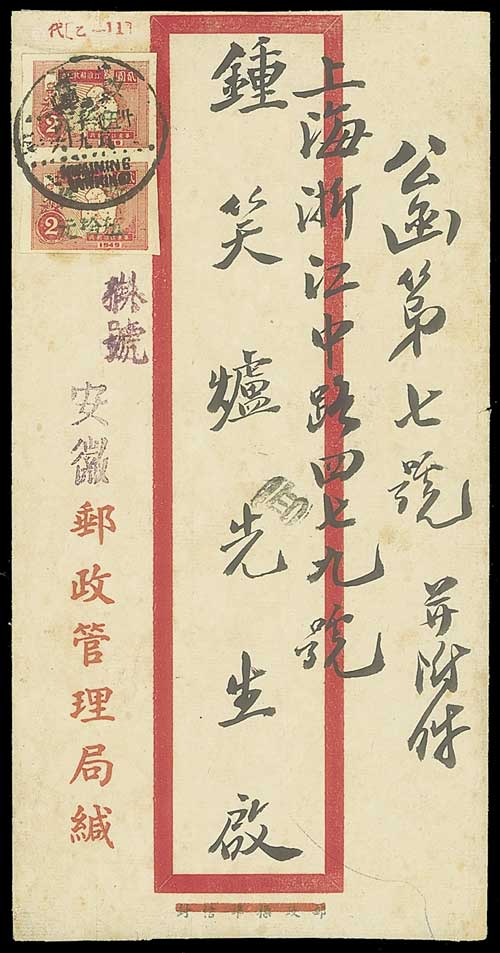 公函第七號 并附件
上海浙江中路四七九號
鍾笑爐先生啟
掛號
安徽郵政管理局緘
2
1949
伍拾元
2